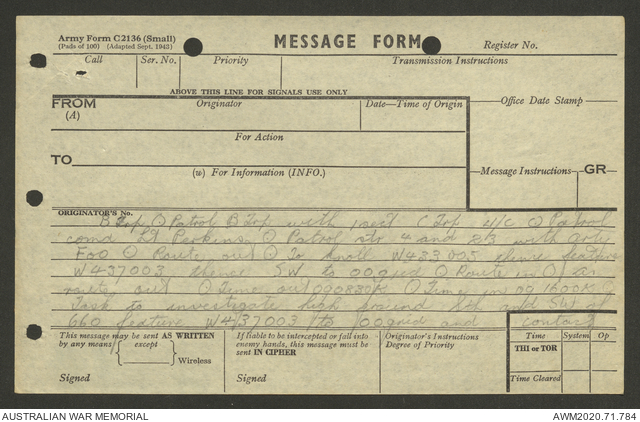 Army Form C2136 (Small)
(Pads of 100) (Adapted Sept. 1943)
MESSAGE FORM
Register No.
Call Ser. No. Priority Transmission Instructions
ABOVE THIS LINE FOR SIGNALS USE ONLY
FROM Originator Date—Time of Origin Office Date Stamp
(A)
For Action
TO
(w) For Information (INFO.) Message Instructions GR
ORIGINATOR'S No.
B Trp ⊙ Patrol B Trp with 1 sect C Trp U/C ⊙ Patrol
comd Lt Perkins ⊙ Patrol str 4 and 23 with arty
Foo ⊙ Route out ⊙ To knoll W433005 thence feature
W437003, thence SW to 00 grid ⊙ Route in ⊙ as
route out ⊙ Time out 000830K ⊙ Time in 00 1600K ⊙
Task to investigate high ground Sth and SW of
660 feature W437003 to 00 grid and contact
This message may be sent AS WRITTEN
by any means except Wireless
Signed
If liable to be intercepted or fall into
enemy hands, this message must be
sent IN CIPHER
Signed
Originator's Instructions
Degree of Priority
Time System Op
THI or TOR
Time Cleared
AUSTRALIAN WAR MEMORIAL
AWM2020.71.784